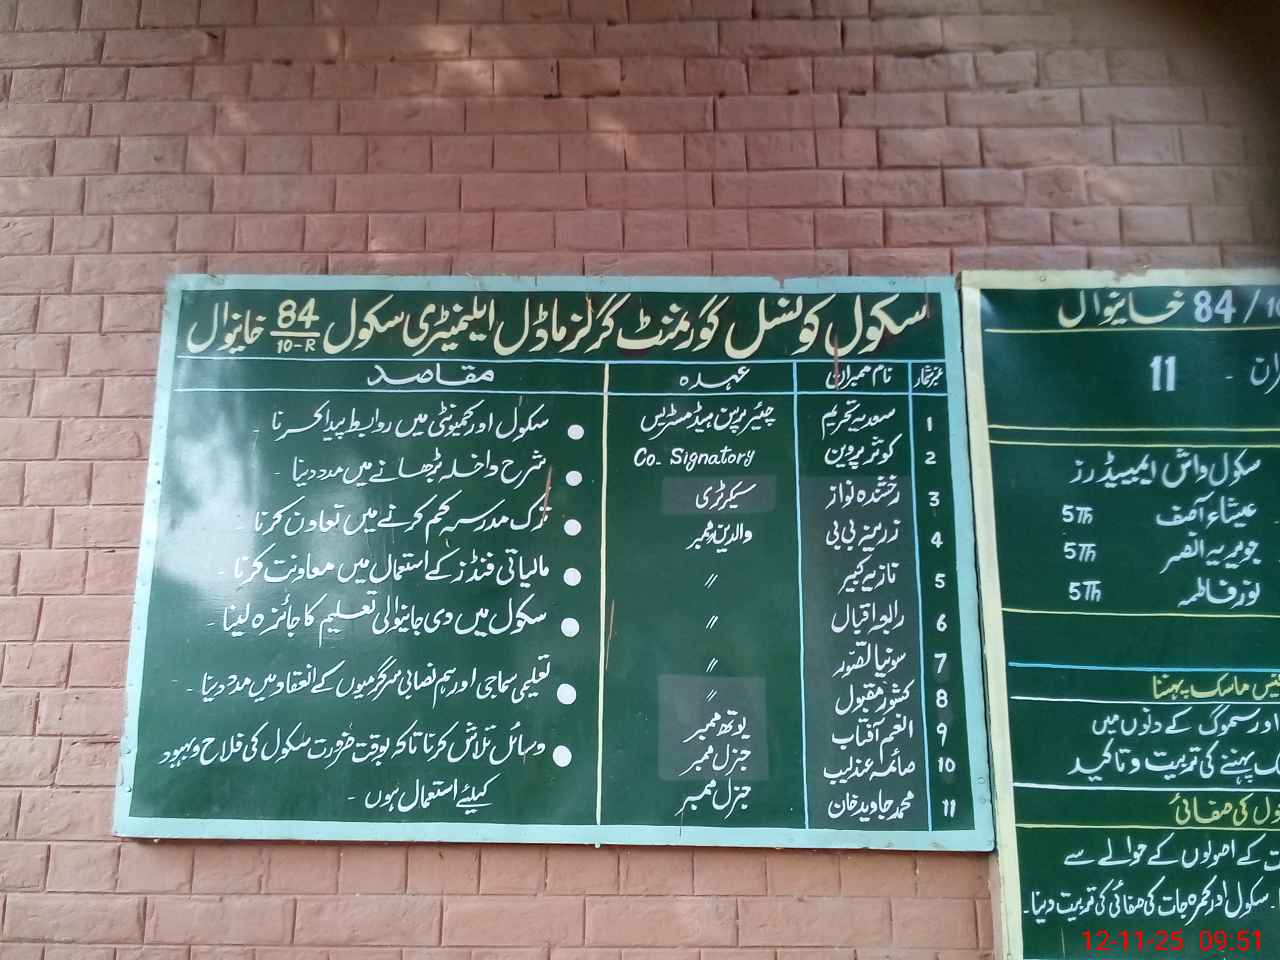 سکول کونسل گورنمنٹ گرلز ماڈل ایلیمنٹری سکول 84/10-R خانیوال
نمبر شمار نام ممبران عہدہ مقاصد
1 سعدیہ تحریم چئیر پرسن ہیڈ مسٹریس
2 کوثر پروین Co_ Signatory
3 رخشندہ نواز سیکرٹری
4 زرینہ بی بی والدین ممبر
5 نازیہ کبیر 〃
6 رابعہ اقبال 〃
7 سونیا تصور 〃
8 کشور مقبول 〃
9 انعم آفتاب یوتھ ممبر
10 صائمہ عندلیب جنرل ممبر
11 محمد جاوید خان جنرل ممبر
● سکول اور کمیونٹی میں روابط پیدا کرنا ۔
● شرح داخلہ بڑھانے میں مدد دینا ۔
● ترک مدرسہ کم کرنے میں تعاون کرنا ۔
● مالیاتی فنڈز کے استعمال میں معاونت کرنا ۔
● سکول میں دی جانیوالی تعلیم کا جائزہ لینا ۔
● تعلیمی سماجی اور ہم نصابی سرگرمیوں کے انعقاد میں مدد دینا ۔
● وسائل تلاش کرنا تاکہ بوقت ضرورت سکول کی فلاح و بہبود
کیلئے استعمال ہوں ۔
84/1 خانیوال
11
سکول واش ایمبیسیڈرز
عیشاء آصف 5Th
جویریہ القمر 5Th
نور فاطمہ 5Th
ماسک پہننا
اور سموگ کے دنوں میں
پہننے کی تربیت و تاکید
کی صفائی
کے اصولوں کے حوالے سے
۔ سکول اور کمرہ جات کی صفائی کی تربیت دینا ۔
12-11-25 09:51